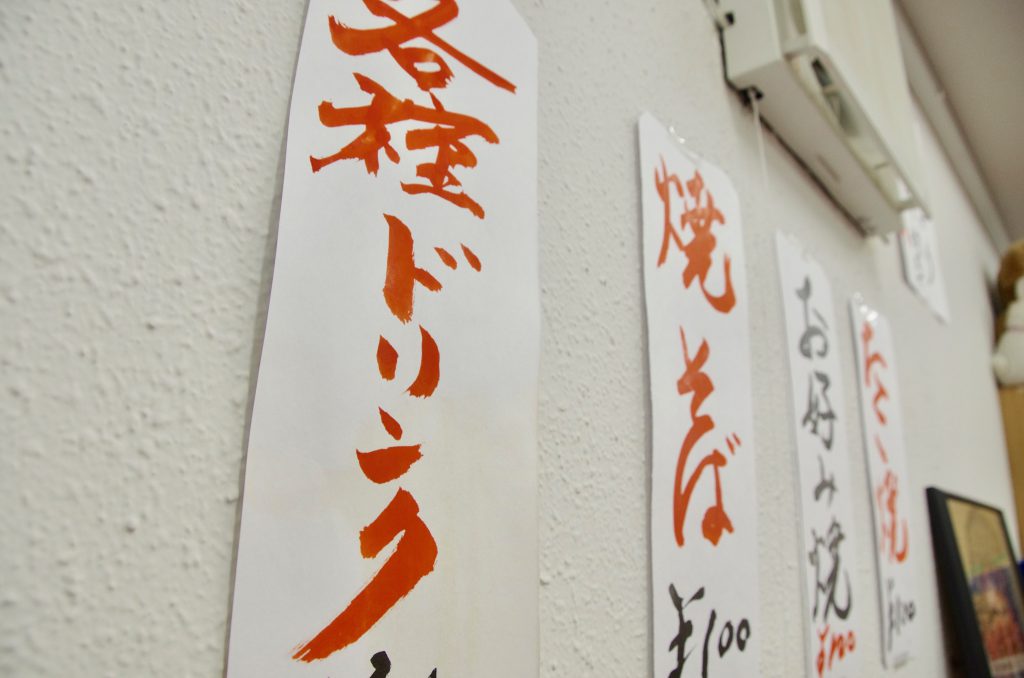 各種ドリンク
焼そば
¥100
お好み焼
¥100
たこ焼
¥100